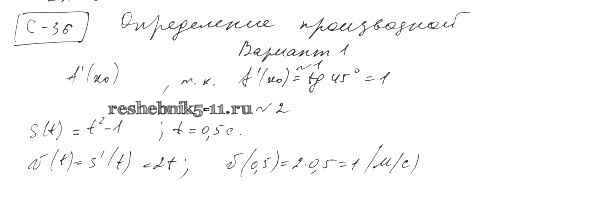 С-36 Определение производной
Вариант 1
№1
f'(x₀) , т.к. f'(x₀) = tg 45° = 1
reshebnik5-11.ru №2
S(t) = t²-1 ; t = 0,5 c.
v(t) = s'(t) = 2t; v(0,5) = 2·0,5 = 1 (м/с)